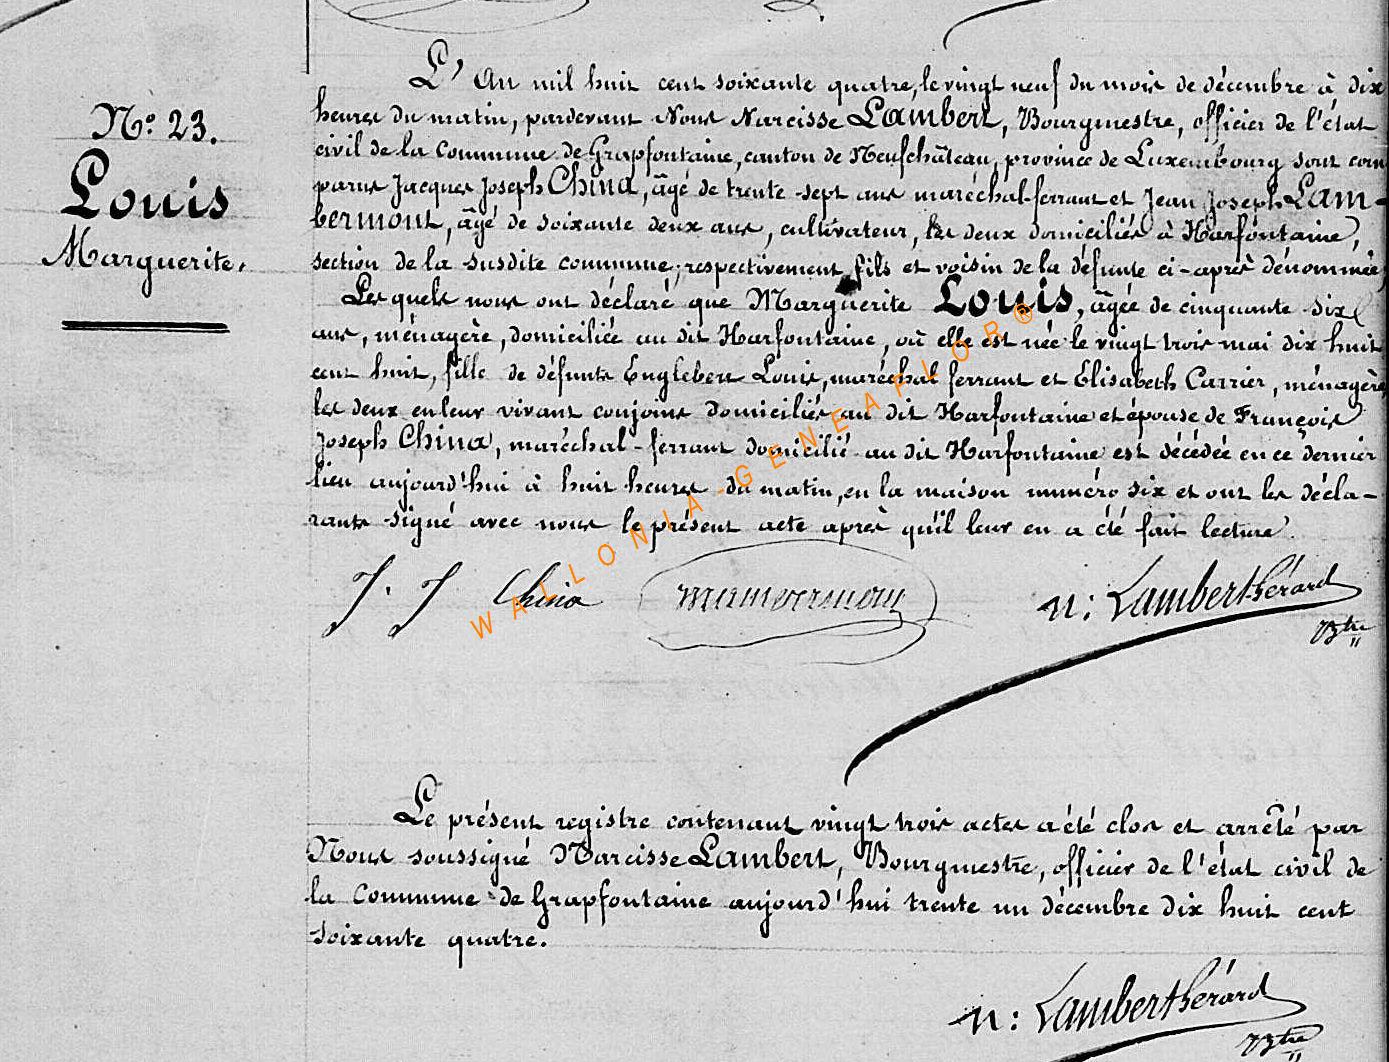 N.° 23.
Louis
Marguerite.
L'An mil huit cent soixante quatre, le vingt neuf du mois de décembre à dix
heures du matin, pardevant Nous Narcisse Lambert, Bourgmestre, officier de l'état
civil de la Commune de Grapfontaine, canton de Neufchâteau, province de Luxembourg sont com
parus Jacques Joseph China, âgé de trente-sept ans maréchal-ferrant et Jean Joseph Lam-
bermont, âgé de soixante deux ans, cultivateur, les deux domiciliés à Harfontaine,
section de la susdite commune, respectivement fils et voisin de la défunte ci-après dénommée,
Les quels nous ont déclaré que Marguerite Louis, âgée de cinquante-six
ans, ménagère, domiciliée au dit Harfontaine, où elle est née le vingt trois mai dix huit
cent huit, fille de défunts Englebert Louis, maréchal ferrant et Elisabeth Carrier, ménagère,
les deux en leur vivant conjoins domiciliés au dit Harfontaine et épouse de François
Joseph China, maréchal-ferrant domicilié au dit Harfontaine est décédée en ce dernier
lieu aujourd'hui à huit heures du matin, en la maison numéro six et ont les décla-
rants signé avec nous le présent acte après qu'il leur en a été fait lecture.
J. J China
n: Lambert Gérard
Bstre
WALLONIA-GENEAFLOR®
Le présent registre contenant vingt trois actes a été clos et arrêté par
Nous soussigné Narcisse Lambert, Bourgmestre, officier de l'état civil de
la Commune de Grapfontaine aujourd'hui trente un décembre dix huit cent
soixante quatre.
n: Lambert Gérard
Bstre